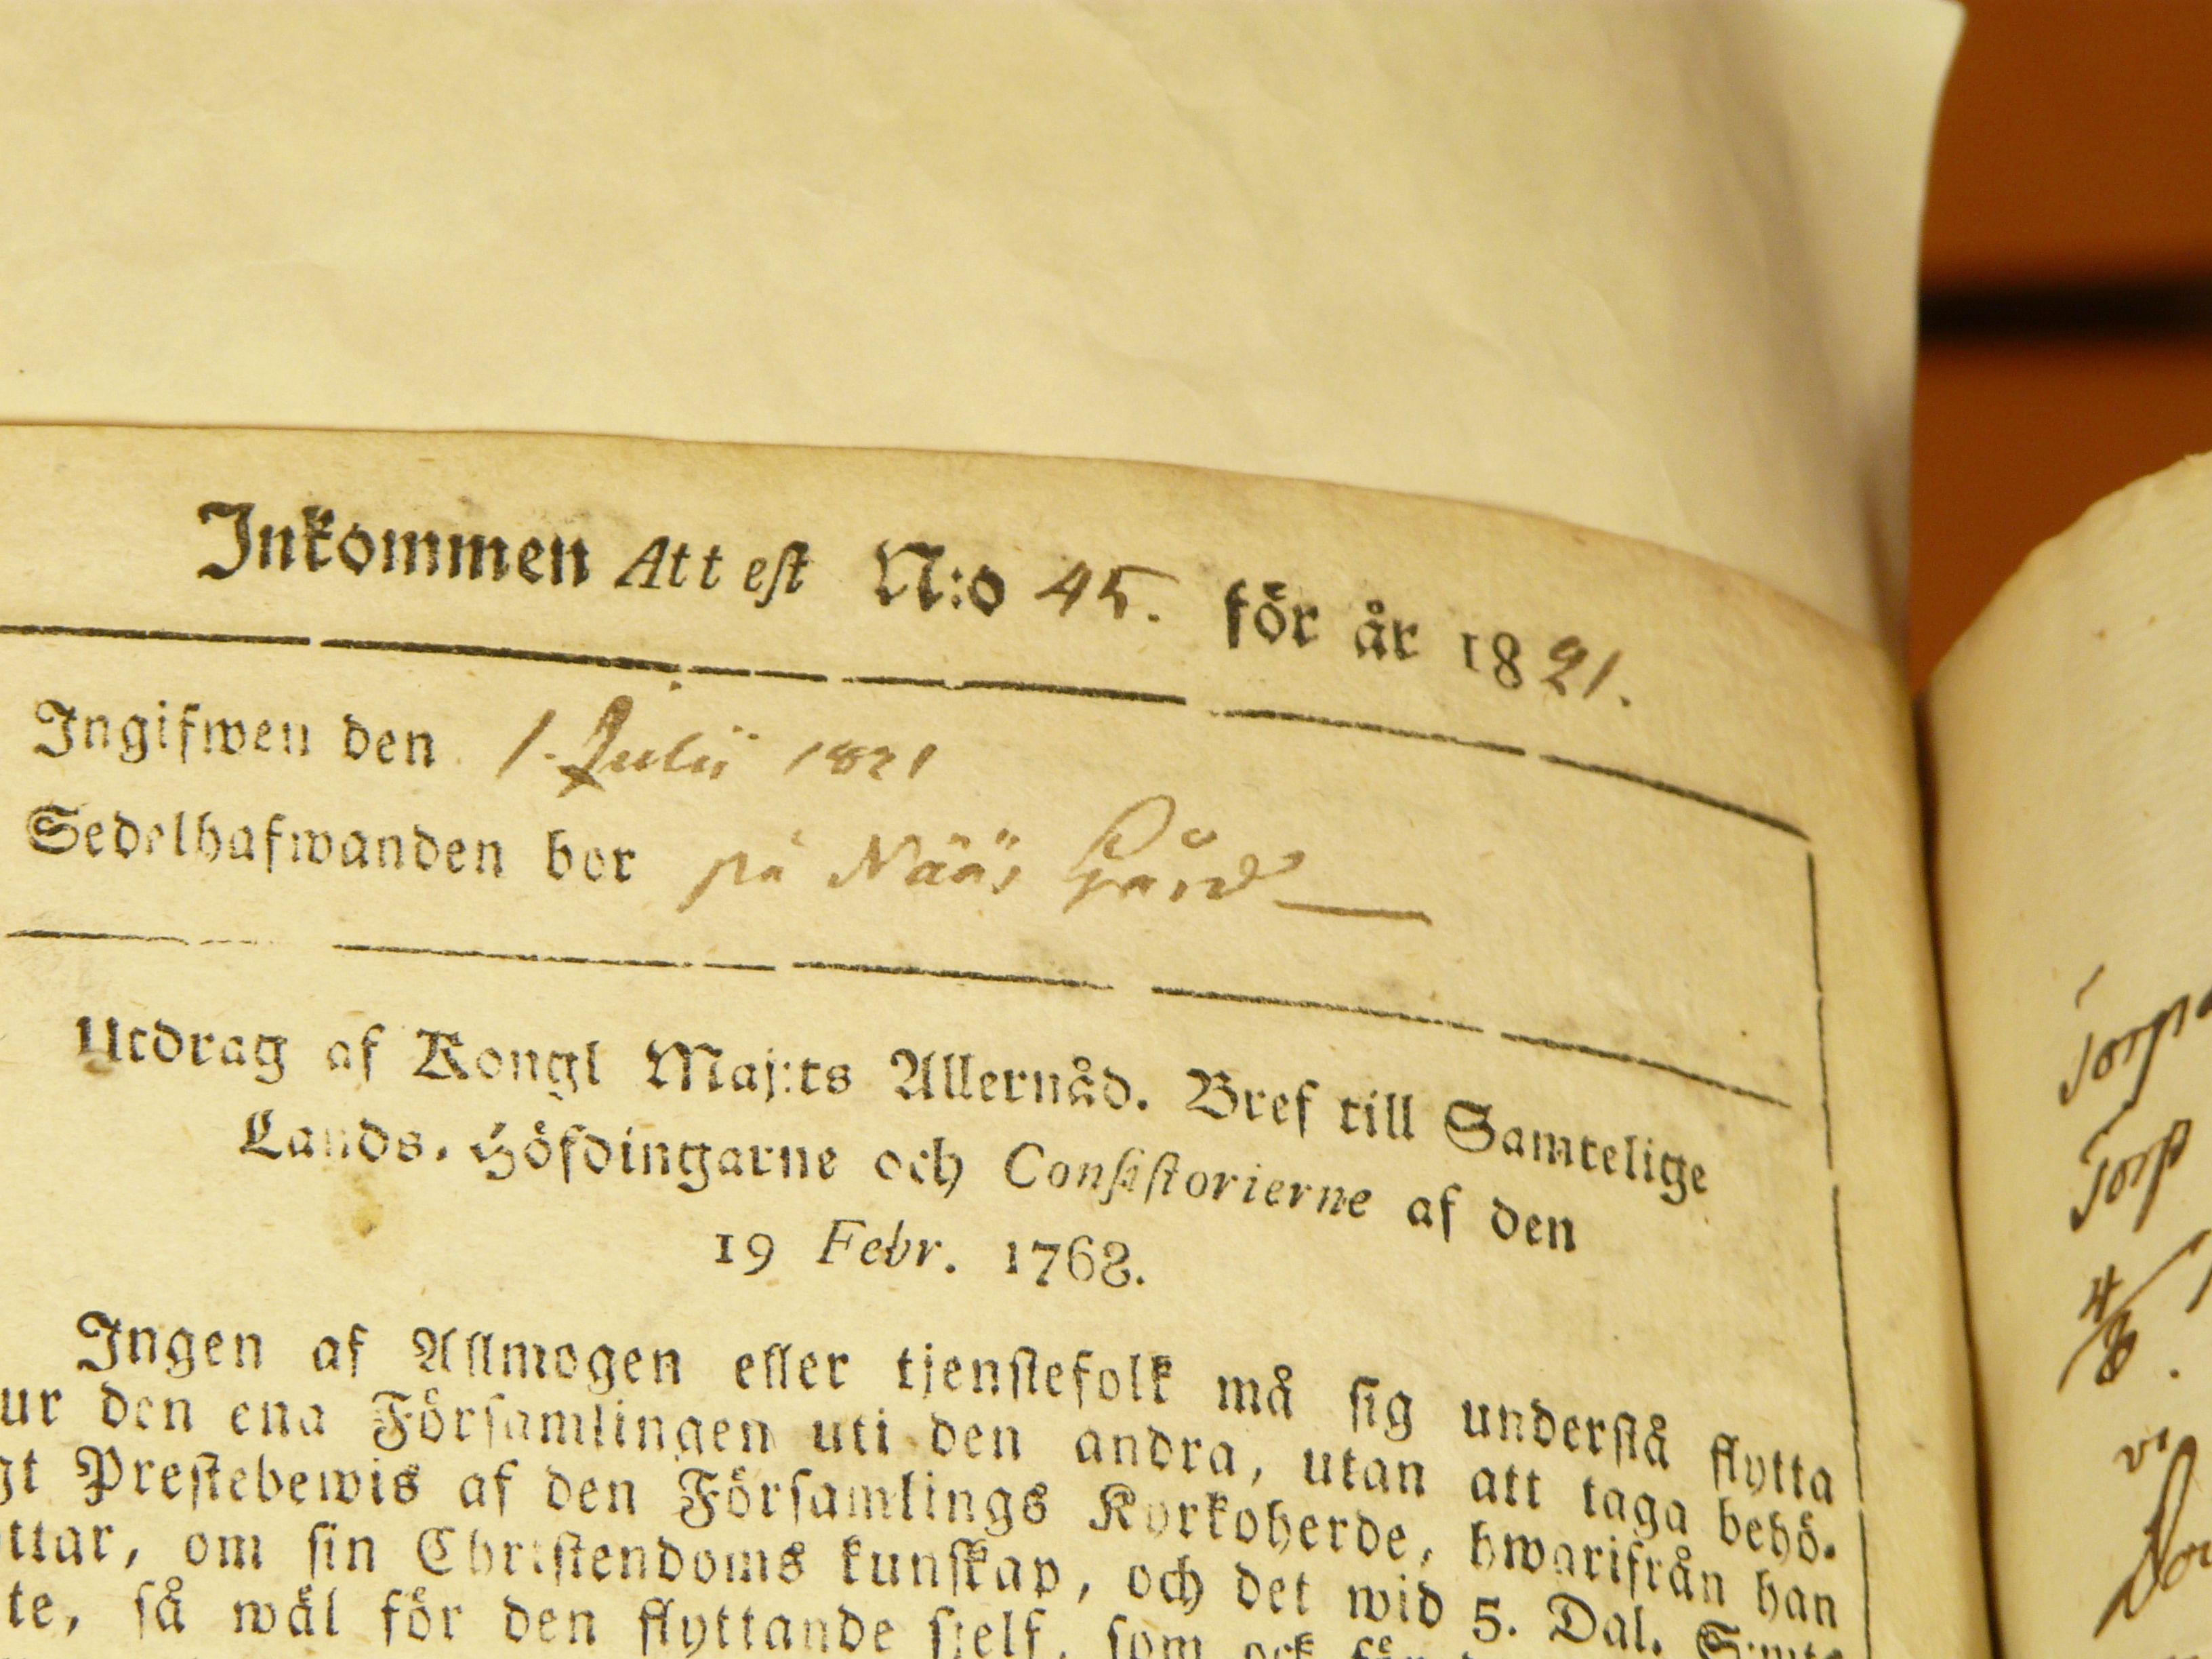 Inkommen Attest N:o 45. för år 1821.
Ingifwen den 1. Julii 1821
Sedelhafwanden bor på Nääs Gård
Utdrag af Kongl Maj:ts Allernåd. Bref till Samtelige
Lands-Höfdingarne och Consistorierne af den
19 Febr. 1768.
Ingen af Allmogen eller tjenstefolk må sig understå flytta
ur den ena Församlingen uti den andra, utan att taga behö-
gt Prestebewis af den Församlings Kyrkoherde, hwarifrån han
ttar, om sin Christendoms kunskap, och det wid 5. Dal. S:mts
te, så wäl för den flyttande sjelf, som ock för
Torp